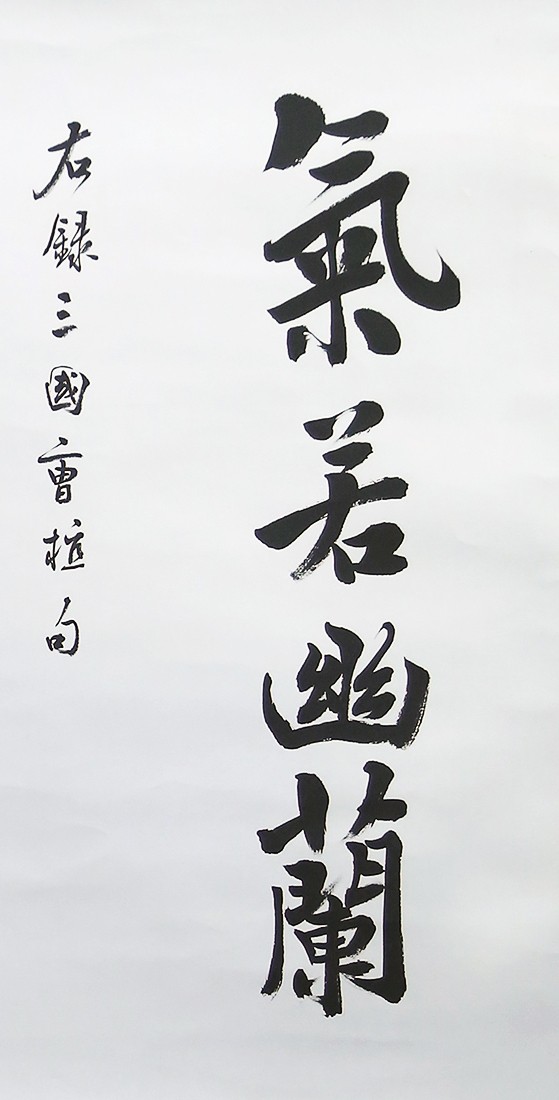 氣若幽蘭
右録三國曹植句